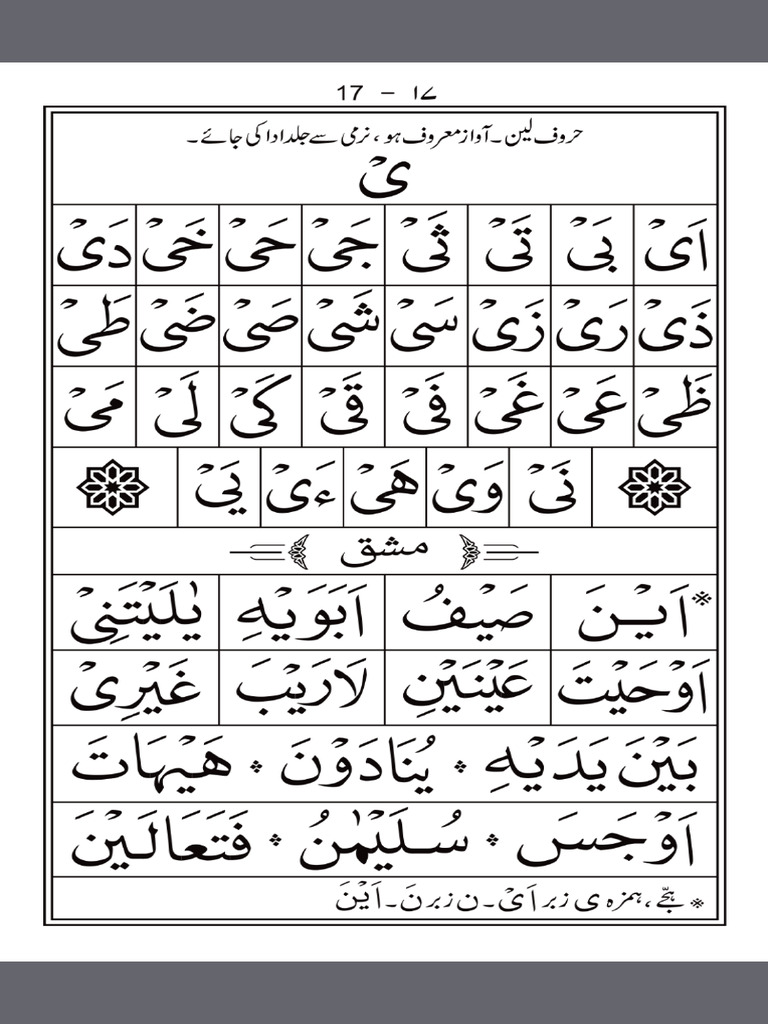 17 – ۱۷
حروف لین۔ آواز معروف ہو، نرمی سے جلد ادا کی جائے۔
یْ
اَیْ بَیْ تَیْ ثَیْ جَیْ حَیْ خَیْ دَیْ
ذَیْ رَیْ زَیْ سَیْ شَیْ صَیْ ضَیْ طَیْ
ظَیْ عَیْ غَیْ فَیْ قَیْ کَیْ لَیْ مَیْ
نَیْ وَیْ هَیْ ءَیْ یَیْ
مشق
اَیْنَ صَیْفُ اَبَوَیْهِ یٰلَیْتَنِیْ
اَوْحَیْتَ عَیْنَیْنِ لَارَیْبَ غَیْرِیْ
بَیْنَ یَدَیْهِ یُنَادَوْنَ هَیْهَاتَ
اَوْجَسَ سُلَیْمٰنُ فَتَعَالَیْنَ
ہجّے، ہمزہ ی زبر اَیْ۔ ن زبر نَ۔ اَیْنَ